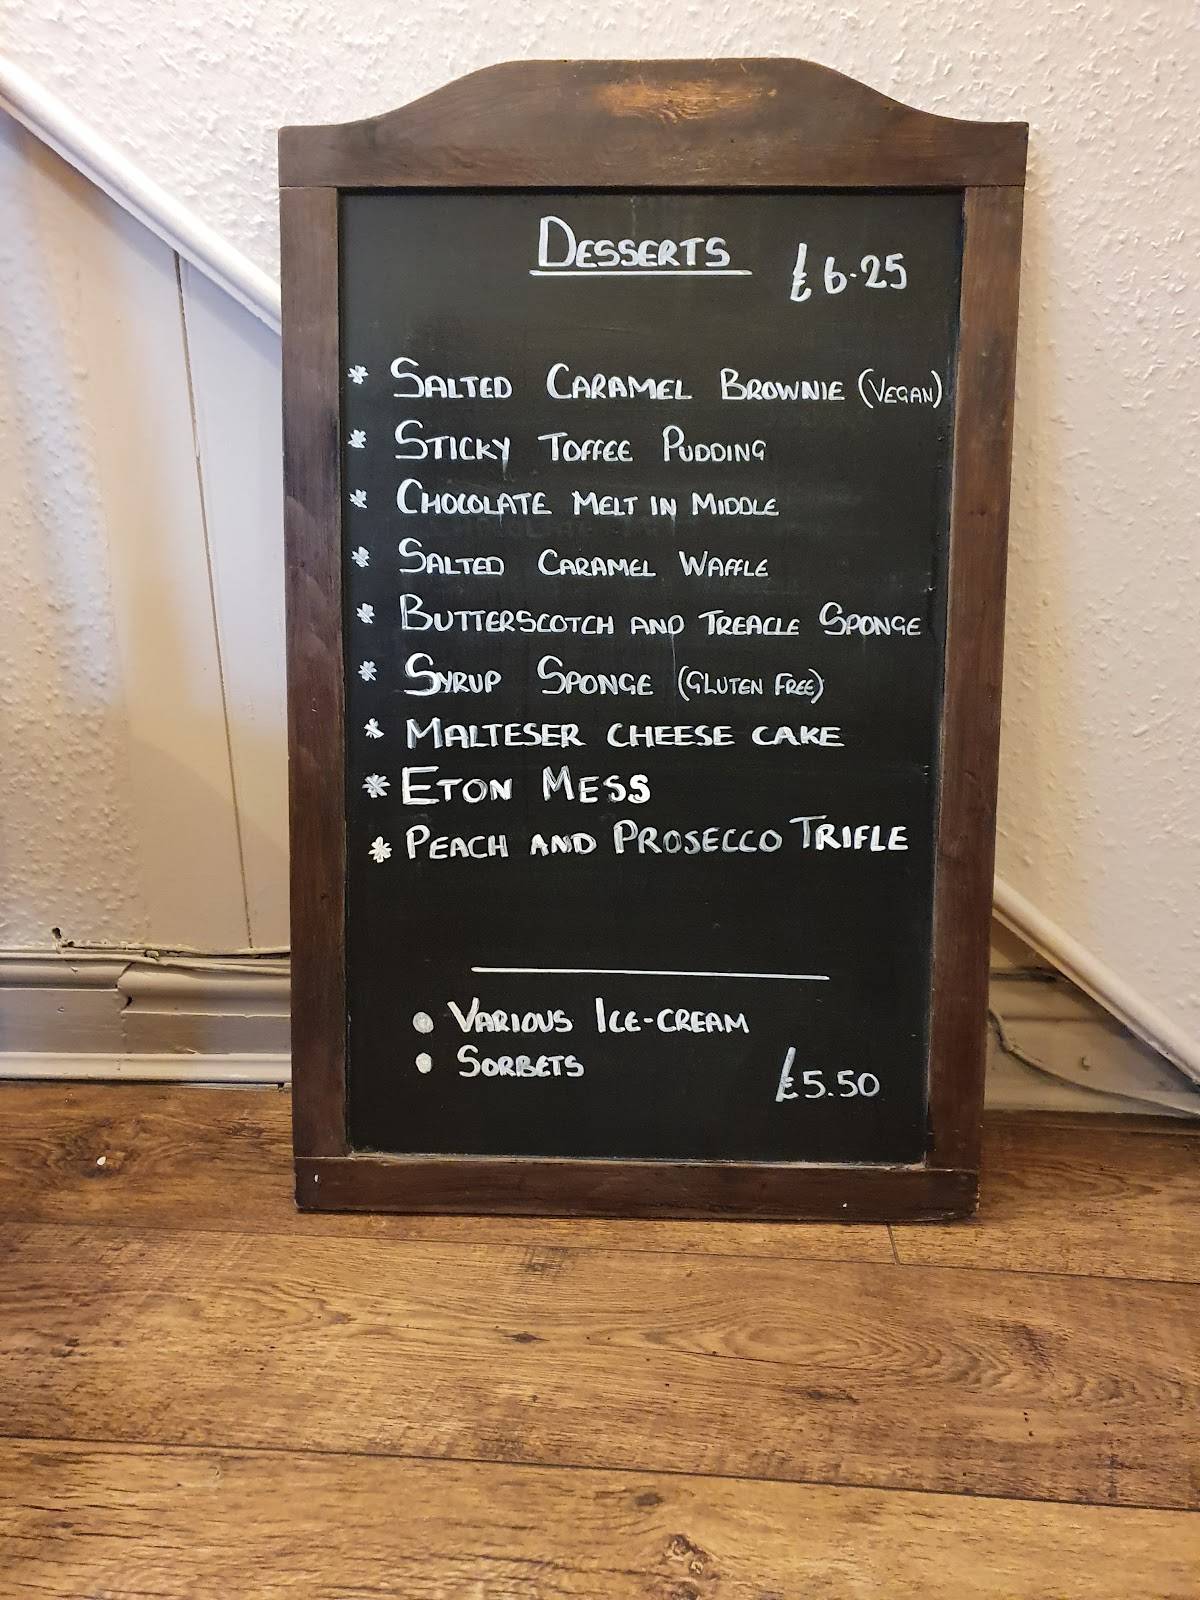 DESSERTS £6.25
* SALTED CARAMEL BROWNIE (VEGAN)
* STICKY TOFFEE PUDDING
* CHOCOLATE MELT IN MIDDLE
* SALTED CARAMEL WAFFLE
* BUTTERSCOTCH AND TREACLE SPONGE
* SYRUP SPONGE (GLUTEN FREE)
* MALTESER CHEESE CAKE
* ETON MESS
* PEACH AND PROSECCO TRIFLE
• VARIOUS ICE-CREAM
• SORBETS
£5.50